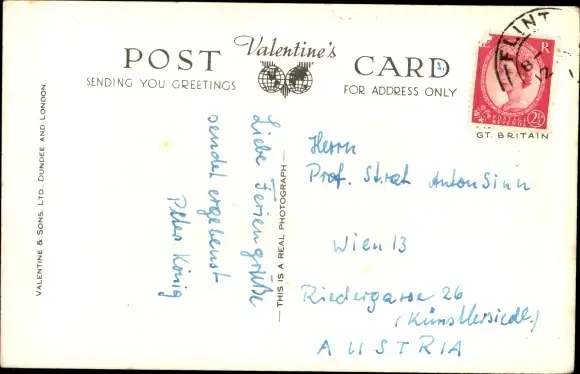 POST Valentine's CARD
SENDING YOU GREETINGS
FOR ADDRESS ONLY
FLINT
POSTAGE REVENUE
2½
GT. BRITAIN
VALENTINE & SONS, LTD. DUNDEE AND LONDON.
Liebe Feriengrüße
sendet ergebenst
Peter König
— THIS IS A REAL PHOTOGRAPH —
Herrn
Prof. Strat Anton Sinn
Wien 13
Riedergasse 26
(Künstlersiedl.)
AUSTRIA